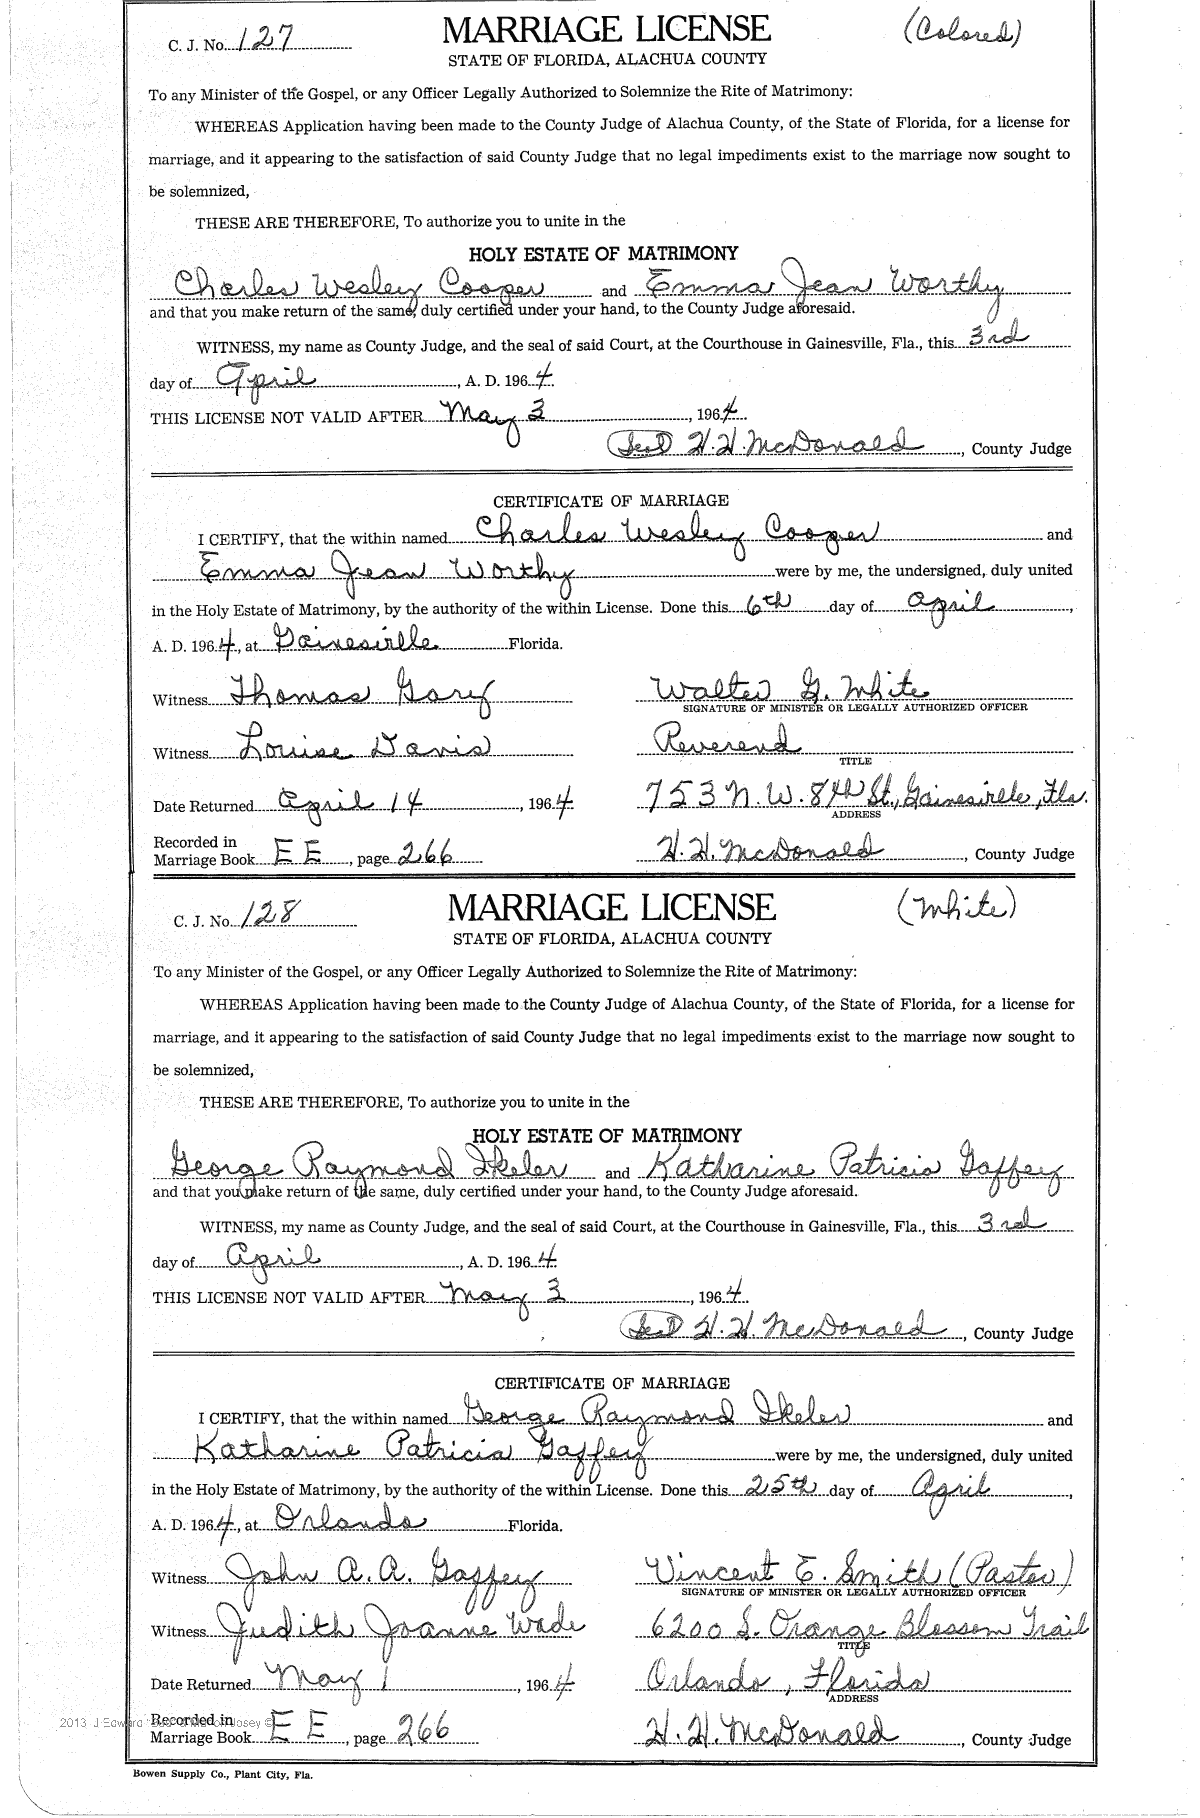 C. J. No. 127 MARRIAGE LICENSE (Colored)
STATE OF FLORIDA, ALACHUA COUNTY
To any Minister of the Gospel, or any Officer Legally Authorized to Solemnize the Rite of Matrimony:
WHEREAS Application having been made to the County Judge of Alachua County, of the State of Florida, for a license for
marriage, and it appearing to the satisfaction of said County Judge that no legal impediments exist to the marriage now sought to
be solemnized,
THESE ARE THEREFORE, To authorize you to unite in the
HOLY ESTATE OF MATRIMONY
Charles Wesley Cooper and Emma Jean Worthy
and that you make return of the same, duly certified under your hand, to the County Judge aforesaid.
WITNESS, my name as County Judge, and the seal of said Court, at the Courthouse in Gainesville, Fla., this 3rd
day of April, A. D. 1964
THIS LICENSE NOT VALID AFTER May 3, 1964
(Seal) H. H. McDonald, County Judge
CERTIFICATE OF MARRIAGE
I CERTIFY, that the within named Charles Wesley Cooper and
Emma Jean Worthy were by me, the undersigned, duly united
in the Holy Estate of Matrimony, by the authority of the within License. Done this 6th day of April,
A. D. 1964, at Gainesville Florida.
Witness Thomas Gary Walter G. White
SIGNATURE OF MINISTER OR LEGALLY AUTHORIZED OFFICER
Witness Louise Davis Reverend
TITLE
Date Returned April 14, 1964 753 N. W. 8th St., Gainesville, Fla.
ADDRESS
Recorded in
Marriage Book EE, page 266 H. H. McDonald, County Judge
C. J. No. 128 MARRIAGE LICENSE (White)
STATE OF FLORIDA, ALACHUA COUNTY
To any Minister of the Gospel, or any Officer Legally Authorized to Solemnize the Rite of Matrimony:
WHEREAS Application having been made to the County Judge of Alachua County, of the State of Florida, for a license for
marriage, and it appearing to the satisfaction of said County Judge that no legal impediments exist to the marriage now sought to
be solemnized,
THESE ARE THEREFORE, To authorize you to unite in the
HOLY ESTATE OF MATRIMONY
George Raymond Ikeler and Katharine Patricia Gaffey
and that you make return of the same, duly certified under your hand, to the County Judge aforesaid.
WITNESS, my name as County Judge, and the seal of said Court, at the Courthouse in Gainesville, Fla., this 3rd
day of April, A. D. 1964
THIS LICENSE NOT VALID AFTER May 3, 1964
(Seal) H. H. McDonald, County Judge
CERTIFICATE OF MARRIAGE
I CERTIFY, that the within named George Raymond Ikeler and
Katharine Patricia Gaffey were by me, the undersigned, duly united
in the Holy Estate of Matrimony, by the authority of the within License. Done this 25th day of April,
A. D. 1964, at Orlando Florida.
Witness John A. A. Gaffey Vincent E. Smith (Pastor)
SIGNATURE OF MINISTER OR LEGALLY AUTHORIZED OFFICER
Witness Judith Joanne Wade 6200 S. Orange Blossom Trail
TITLE
Date Returned May 1, 1964 Orlando, Florida
ADDRESS
Recorded in
Marriage Book EE, page 266 H. H. McDonald, County Judge
Bowen Supply Co., Plant City, Fla.